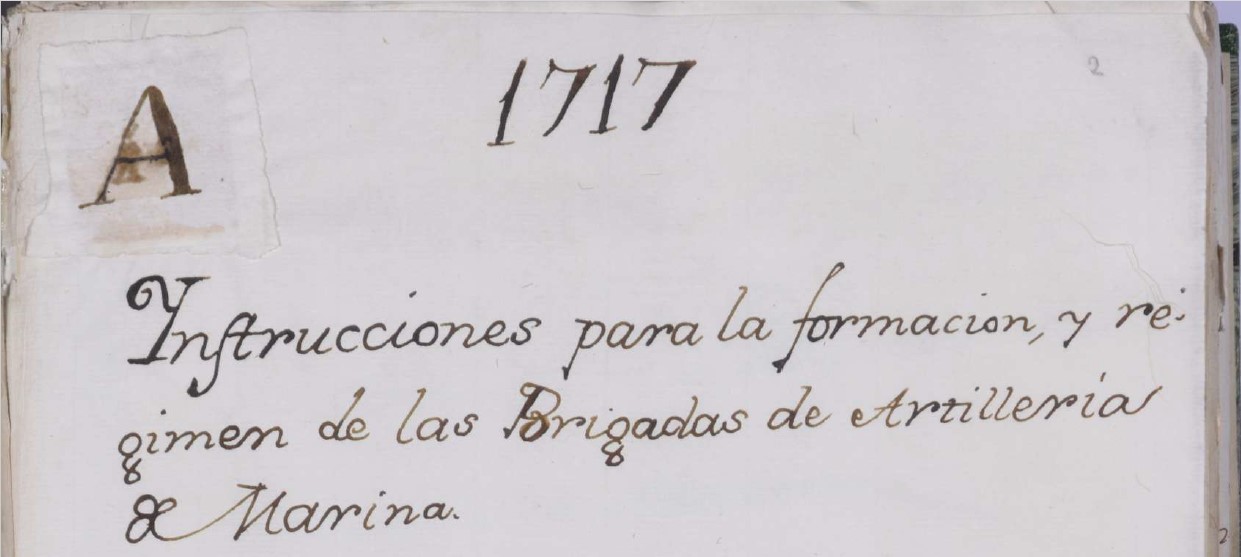 A
1717
2
Ynstrucciones para la formacion, y re-
gimen de las Brigadas de Artillería
de Marina.
2